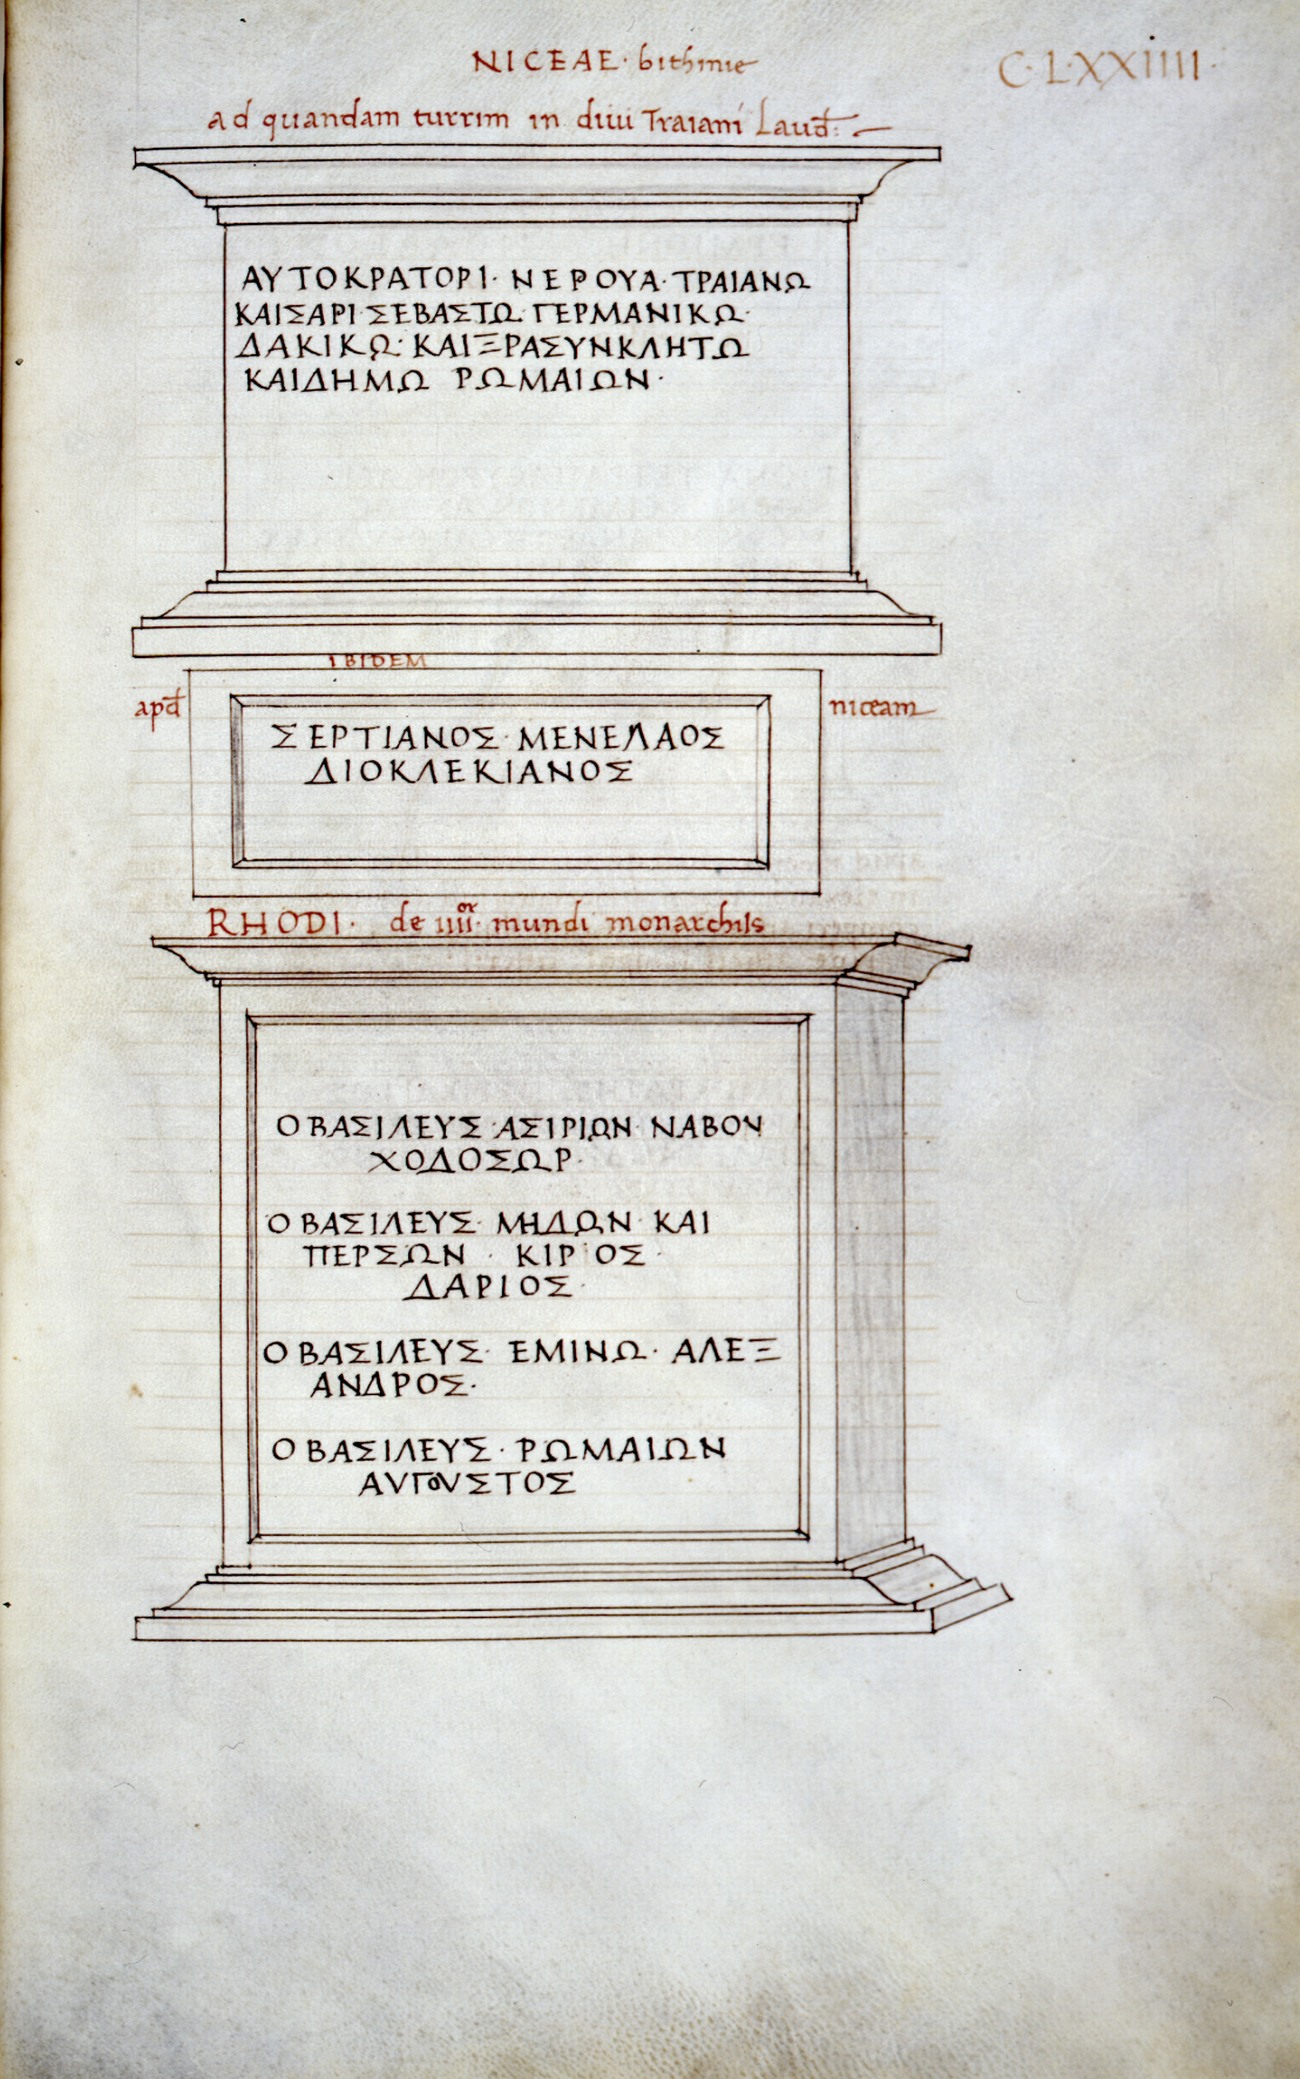 NICEAE · bithinie
C·L·XXIIII·
ad quandam turrim in diui Traiani Laud:
ΑΥΤΟΚΡΑΤΟΡΙ· ΝΕΡΟΥΑ· ΤΡΑΙΑΝΩ
ΚΑΙΣΑΡΙ·ΣΕΒΑΣΤΩ·ΓΕΡΜΑΝΙΚΩ·
ΔΑΚΙΚΩ· ΚΑΙΞΡΑΣΥΝΚΛΗΤΩ
ΚΑΙΔΗΜΩ ΡΩΜΑΙΩΝ·
IBIDEM
apd niceam
ΣΕΡΤΙΑΝΟΣ· ΜΕΝΕΛΑΟΣ
ΔΙΟΚΛΕΚΙΑΝΟΣ
RHODI· de iiii·or mundi monarchiis
Ο ΒΑΣΙΛΕΥΣ·ΑΣΙΡΙΩΝ· ΝΑΒΟΥ
ΧΟΔΟΣΩΡ·
Ο ΒΑΣΙΛΕΥΣ· ΜΗΔΩΝ· ΚΑΙ
ΠΕΡΣΩΝ · ΚΙΡΙΟΣ·
ΔΑΡΙΟΣ·
Ο ΒΑΣΙΛΕΥΣ· ΕΜΙΝΩ· ΑΛΕΞ
ΑΝΔΡΟΣ·
Ο ΒΑΣΙΛΕΥΣ· ΡΩΜΑΙΩΝ
ΑΥΓΟΥΣΤΟΣ